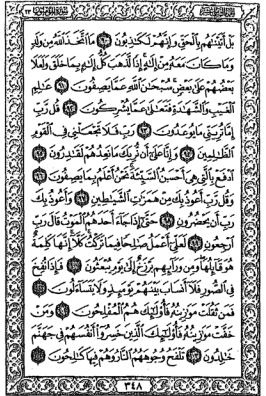 بَلْ أَتَيْنَٰهُم بِٱلْحَقِّ وَإِنَّهُمْ لَكَٰذِبُونَ ٩٠ مَا ٱتَّخَذَ ٱللَّهُ مِن وَلَدٍ
وَمَا كَانَ مَعَهُۥ مِنْ إِلَٰهٍ إِذًا لَّذَهَبَ كُلُّ إِلَٰهٍۭ بِمَا خَلَقَ وَلَعَلَا
بَعْضُهُمْ عَلَىٰ بَعْضٍ سُبْحَٰنَ ٱللَّهِ عَمَّا يَصِفُونَ ٩١ عَٰلِمِ
ٱلْغَيْبِ وَٱلشَّهَٰدَةِ فَتَعَٰلَىٰ عَمَّا يُشْرِكُونَ ٩٢ قُل رَّبِّ
إِمَّا تُرِيَنِّي مَا يُوعَدُونَ ٩٣ رَبِّ فَلَا تَجْعَلْنِي فِي ٱلْقَوْمِ
ٱلظَّٰلِمِينَ ٩٤ وَإِنَّا عَلَىٰٓ أَن نُّرِيَكَ مَا نَعِدُهُمْ لَقَٰدِرُونَ ٩٥
ٱدْفَعْ بِٱلَّتِي هِيَ أَحْسَنُ ٱلسَّيِّئَةَ نَحْنُ أَعْلَمُ بِمَا يَصِفُونَ ٩٦
وَقُل رَّبِّ أَعُوذُ بِكَ مِنْ هَمَزَٰتِ ٱلشَّيَٰطِينِ ٩٧ وَأَعُوذُ بِكَ
رَبِّ أَن يَحْضُرُونِ ٩٨ حَتَّىٰٓ إِذَا جَآءَ أَحَدَهُمُ ٱلْمَوْتُ قَالَ رَبِّ
ٱرْجِعُونِ ٩٩ لَعَلِّيٓ أَعْمَلُ صَٰلِحًا فِيمَا تَرَكْتُ كَلَّآ إِنَّهَا كَلِمَةٌ
هُوَ قَآئِلُهَا وَمِن وَرَآئِهِم بَرْزَخٌ إِلَىٰ يَوْمِ يُبْعَثُونَ ١٠٠ فَإِذَا نُفِخَ
فِي ٱلصُّورِ فَلَآ أَنسَابَ بَيْنَهُمْ يَوْمَئِذٍ وَلَا يَتَسَآءَلُونَ ١٠١
فَمَن ثَقُلَتْ مَوَٰزِينُهُۥ فَأُو۟لَٰٓئِكَ هُمُ ٱلْمُفْلِحُونَ ١٠٢ وَمَنْ
خَفَّتْ مَوَٰزِينُهُۥ فَأُو۟لَٰٓئِكَ ٱلَّذِينَ خَسِرُوٓا۟ أَنفُسَهُمْ فِي جَهَنَّمَ
خَٰلِدُونَ ١٠٣ تَلْفَحُ وُجُوهَهُمُ ٱلنَّارُ وَهُمْ فِيهَا كَٰلِحُونَ ١٠٤
٣٤٨